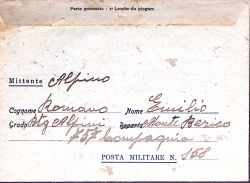 Parte gommata - 1º Lembo da piegare
Mittente Alpino
Cognome Romano Nome Emilio
Grado Btg Alpini Reparto Mont Berico
757 Compagnia
POSTA MILITARE N. 158